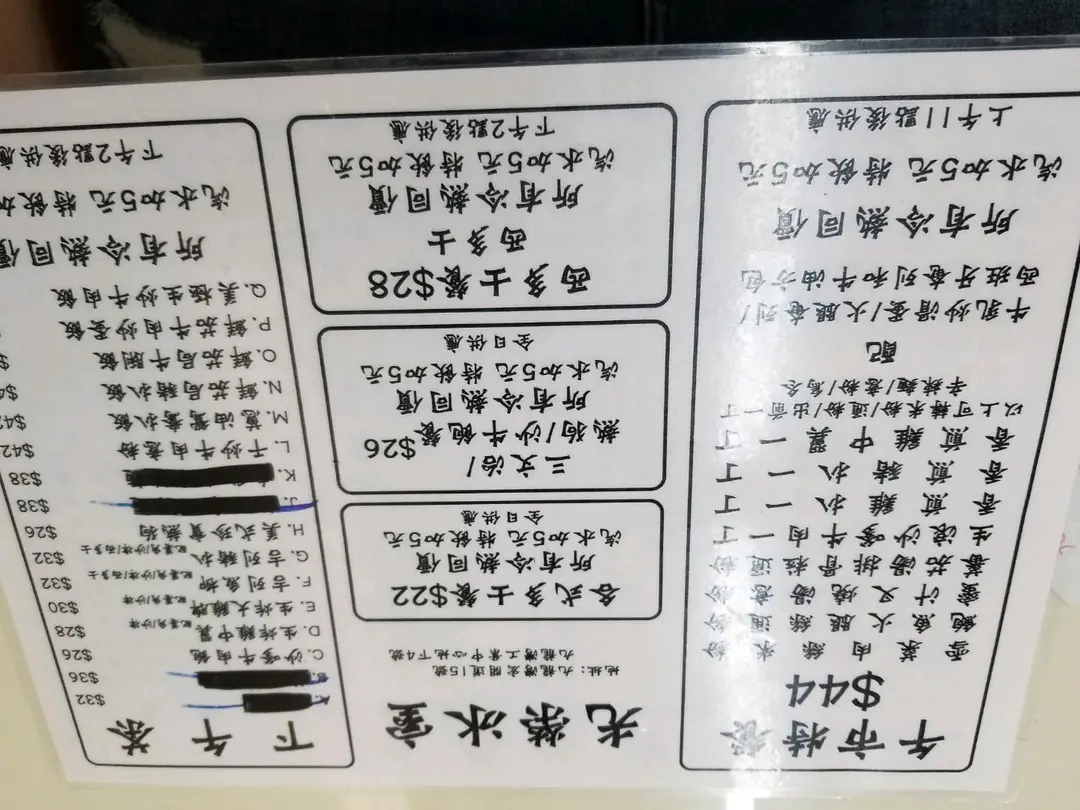 午市特餐
$44
雪菜肉絲米粉
鮑魚火腿絲通粉
蜜汁叉燒湯意粉
蕃茄湯排骨粒通粉
生滾沙嗲牛肉一丁
香煎雞扒一丁
香煎豬扒一丁
香煎雞中翼一丁
以上可轉米粉/通粉/出前一丁
辛辣麵/意粉/烏冬
配
牛乳炒/滑蛋/火腿奄列/
西班牙奄列和牛油方包
所有冷熱同價
汽水加5元 特飲加5元
上午11點後供應
光榮冰室
地址:九龍灣宏開道15號
九龍灣工業中心地下4號
各式多士餐$22
所有冷熱同價
汽水加5元 特飲加5元
全日供應
三文治/
熱狗/沙牛飽餐$26
所有冷熱同價
汽水加5元 特飲加5元
全日供應
西多士餐$28
西多士
所有冷熱同價
汽水加5元 特飲加5元
下午2點後供應
下午茶
A. $32
B. $36
C. 沙嗲牛肉飽 $26
D. 生炸雞中翼 $28
E. 生炸大雞髀 配薯角/沙律 $30
F. 吉列魚柳 配薯角/沙律/西多士 $32
G. 吉列豬扒 配薯角/沙律/西多士 $32
H. 美式珍寶熱狗 $26
J. $38
K. $38
L. 干炒牛肉意粉 $42
M. 蔥油鴛鴦扒飯
N. 鮮茄焗豬扒飯
O. 鮮茄焗牛脷飯
P. 鮮茄牛肉炒蛋飯
Q. 美極生炒牛肉飯
所有冷熱同價
汽水加5元 特飲加
下午2點後供應